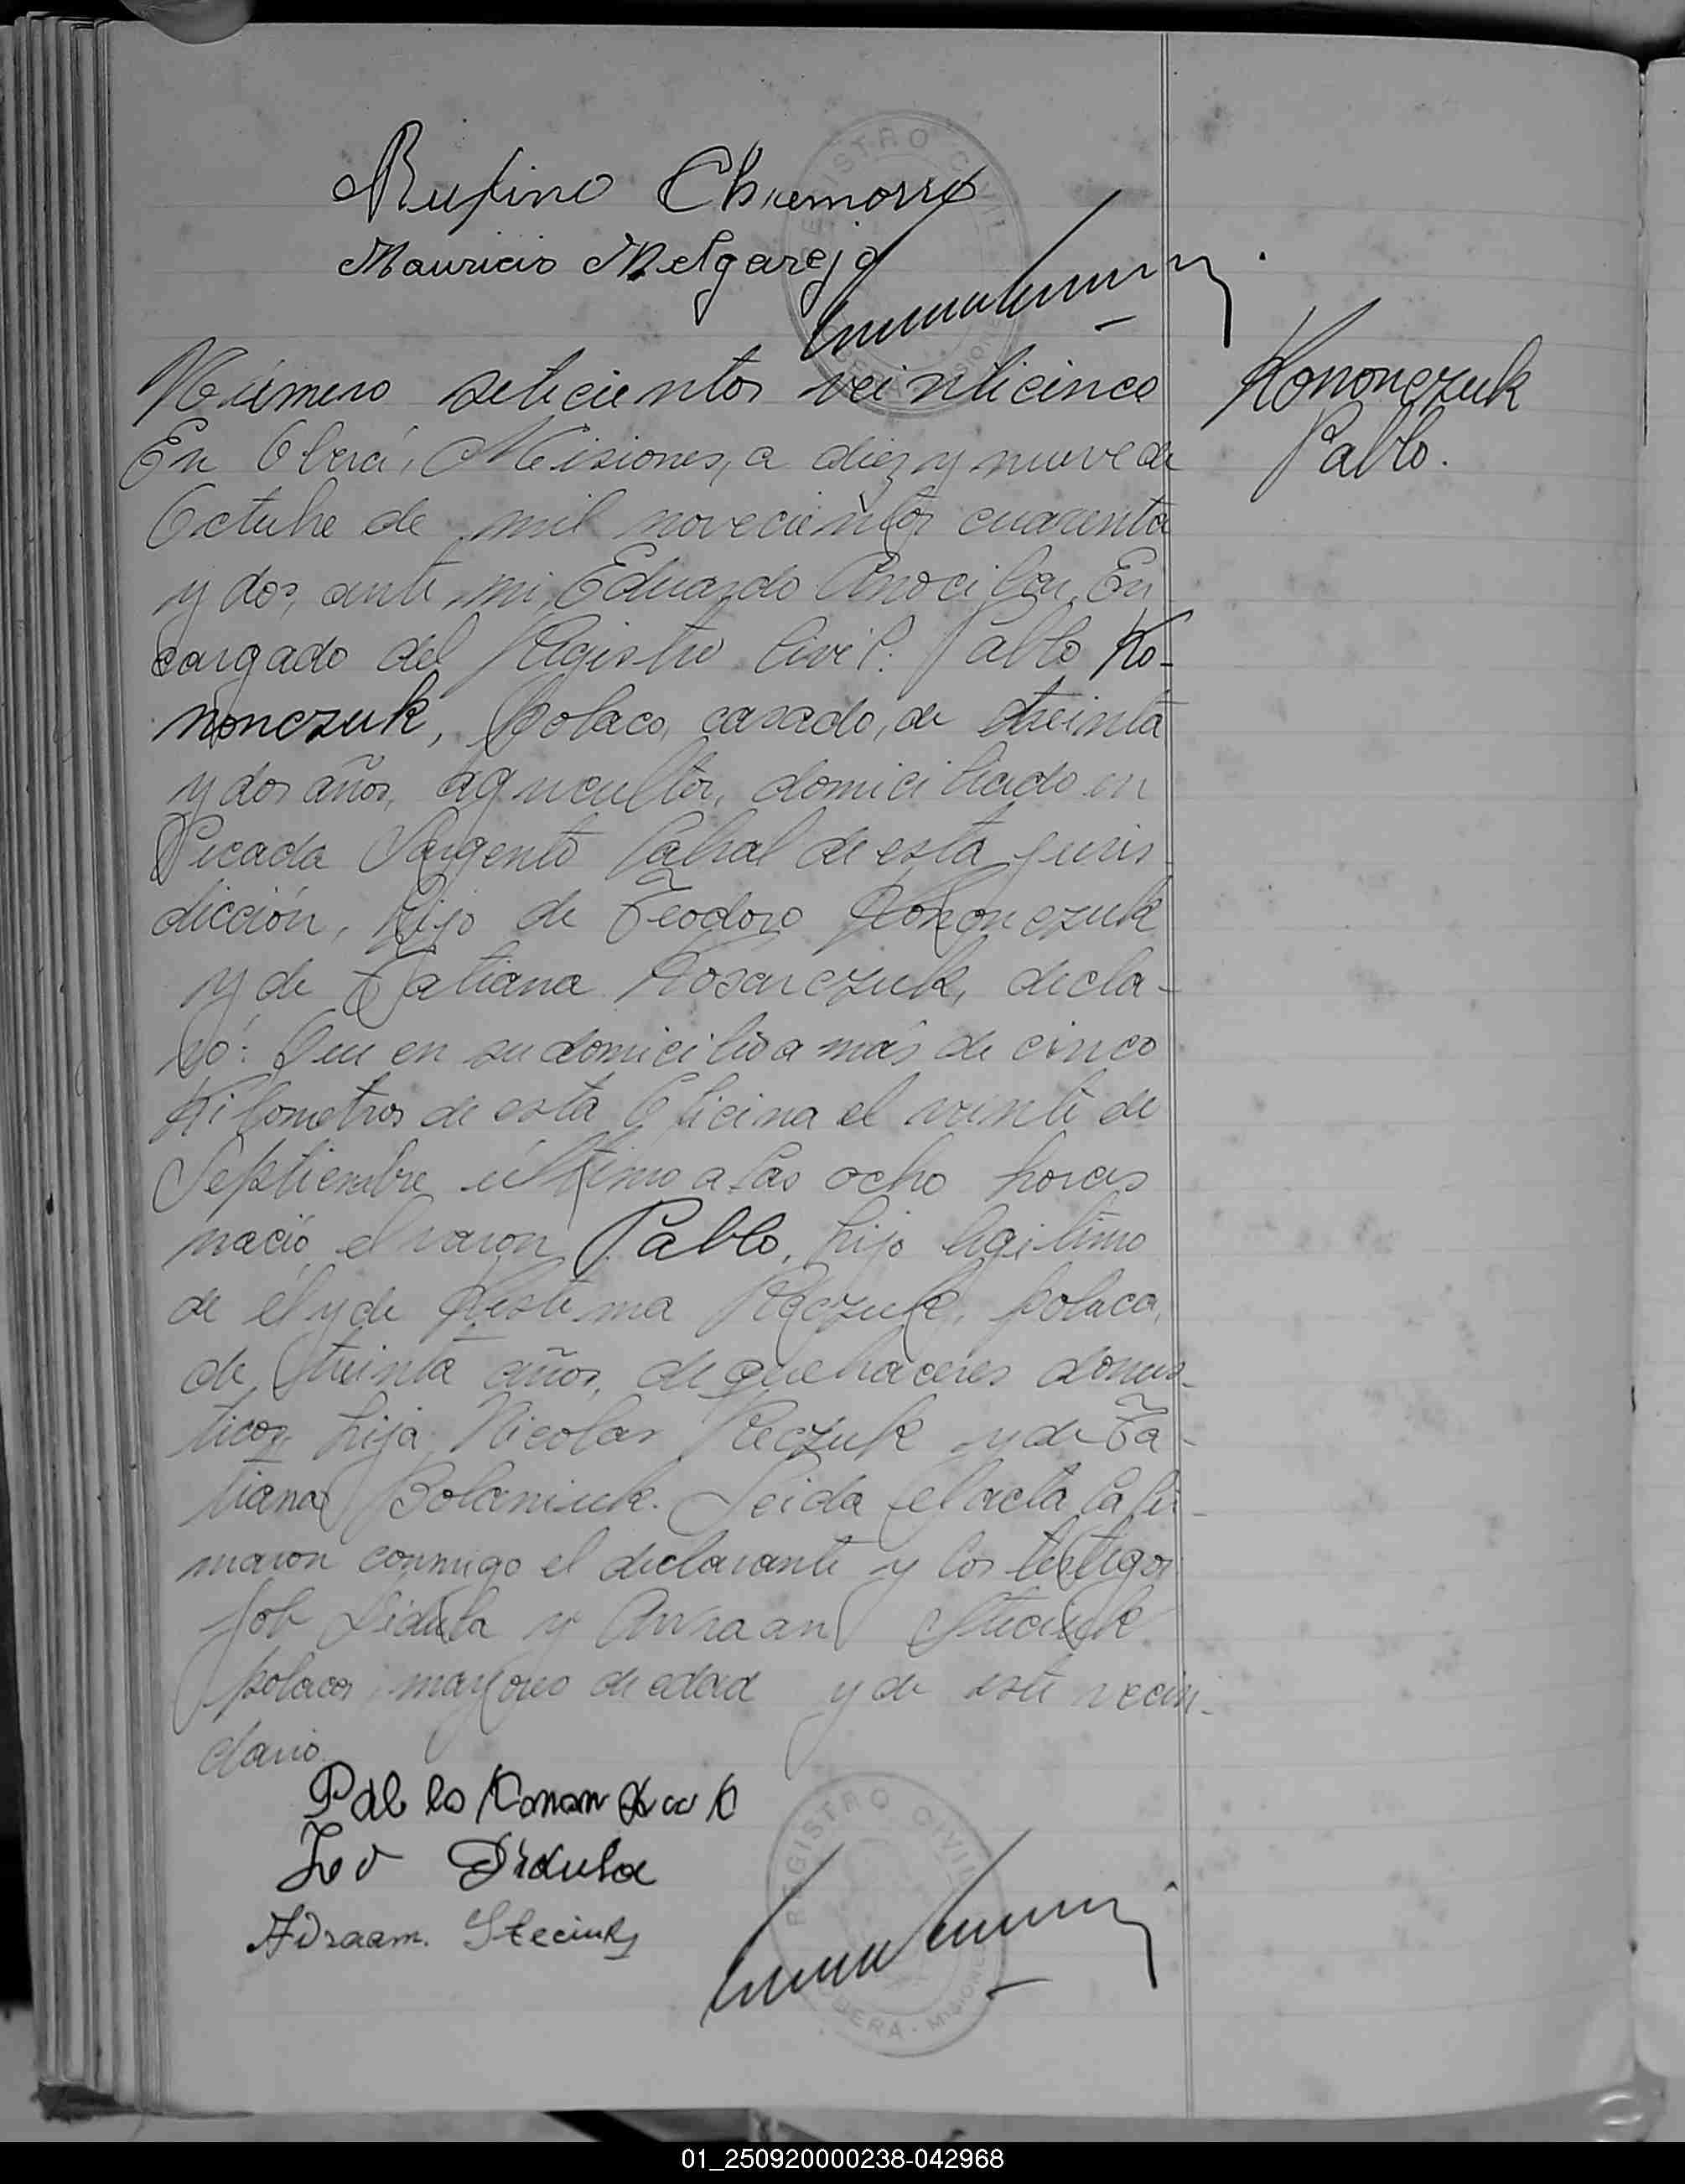 Rufino Chamorro
Mauricio Melgarejo
REGISTRO CIVIL
Número setecientos veinticinco
Kononczuk
Pablo.
En Oberá, Misiones, a diez y nueve de
Octubre de mil novecientos cuarenta
y dos, ante mi, Eduardo En
cargado del Registro Civil: Pablo Ko-
nonczuk, polaco, casado, de treinta
y dos años, agricultor, domiciliado en
Picada Sargento Cabral de esta juris
dicción, hijo de Teodoro Kononczuk
y de Tatiana Kosarczuk, decla-
ró: Que en su domicilio a más de cinco
Kilometros de esta Oficina el veinte de
Septiembre último a las ocho horas
nació el varon Pablo, hijo legitimo
de él y de polaca,
de treinta años, de quehaceres domes-
ticos, hija Nicolas Reczuk y de Ta-
tiana Bolaniuk. Leida el acta la fir-
maron conmigo el declarante y los testigos
Job Didula y Avraan Steciuk
polacos, mayores de edad y de este vecin-
dario.
Pablo
Didula
Steciuk
REGISTRO CIVIL
OBERA - MISIONES
01_250920000238-042968